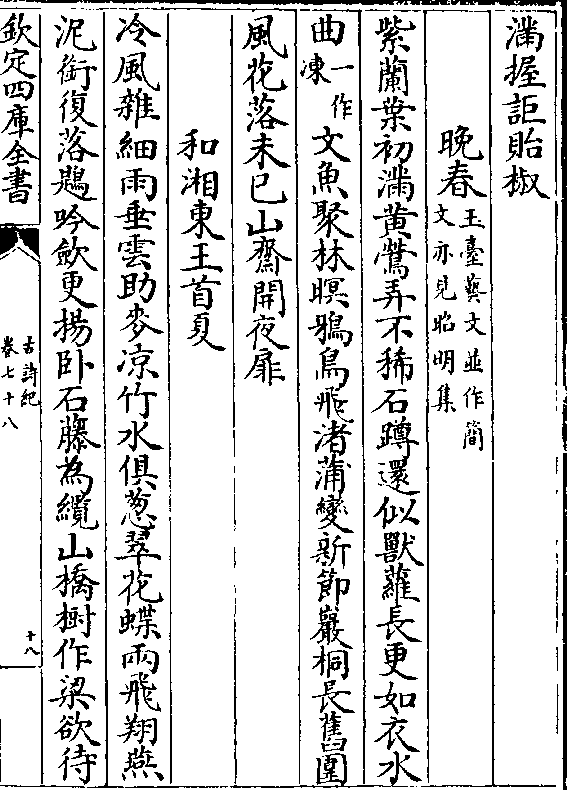 滿握詎貽椒
晚春玉臺藝文並作簡文亦見昭明集
紫蘭葉初滿黃鶯弄不稀石蹲還似獸蘿長更如衣水
曲一作凍文魚聚林暝鴉鳥飛渚蒲變新節巖桐長舊圍
風花落未已山齋開夜扉
和湘東王首夏
冷風雜細雨垂雲助麥凉竹水俱葱翠花蝶兩飛翔燕
泥銜復落鶗吟歛更揚卧石藤為纜山橋樹作梁欲待
欽定四庫全書
古詩紀
卷七十八
十八